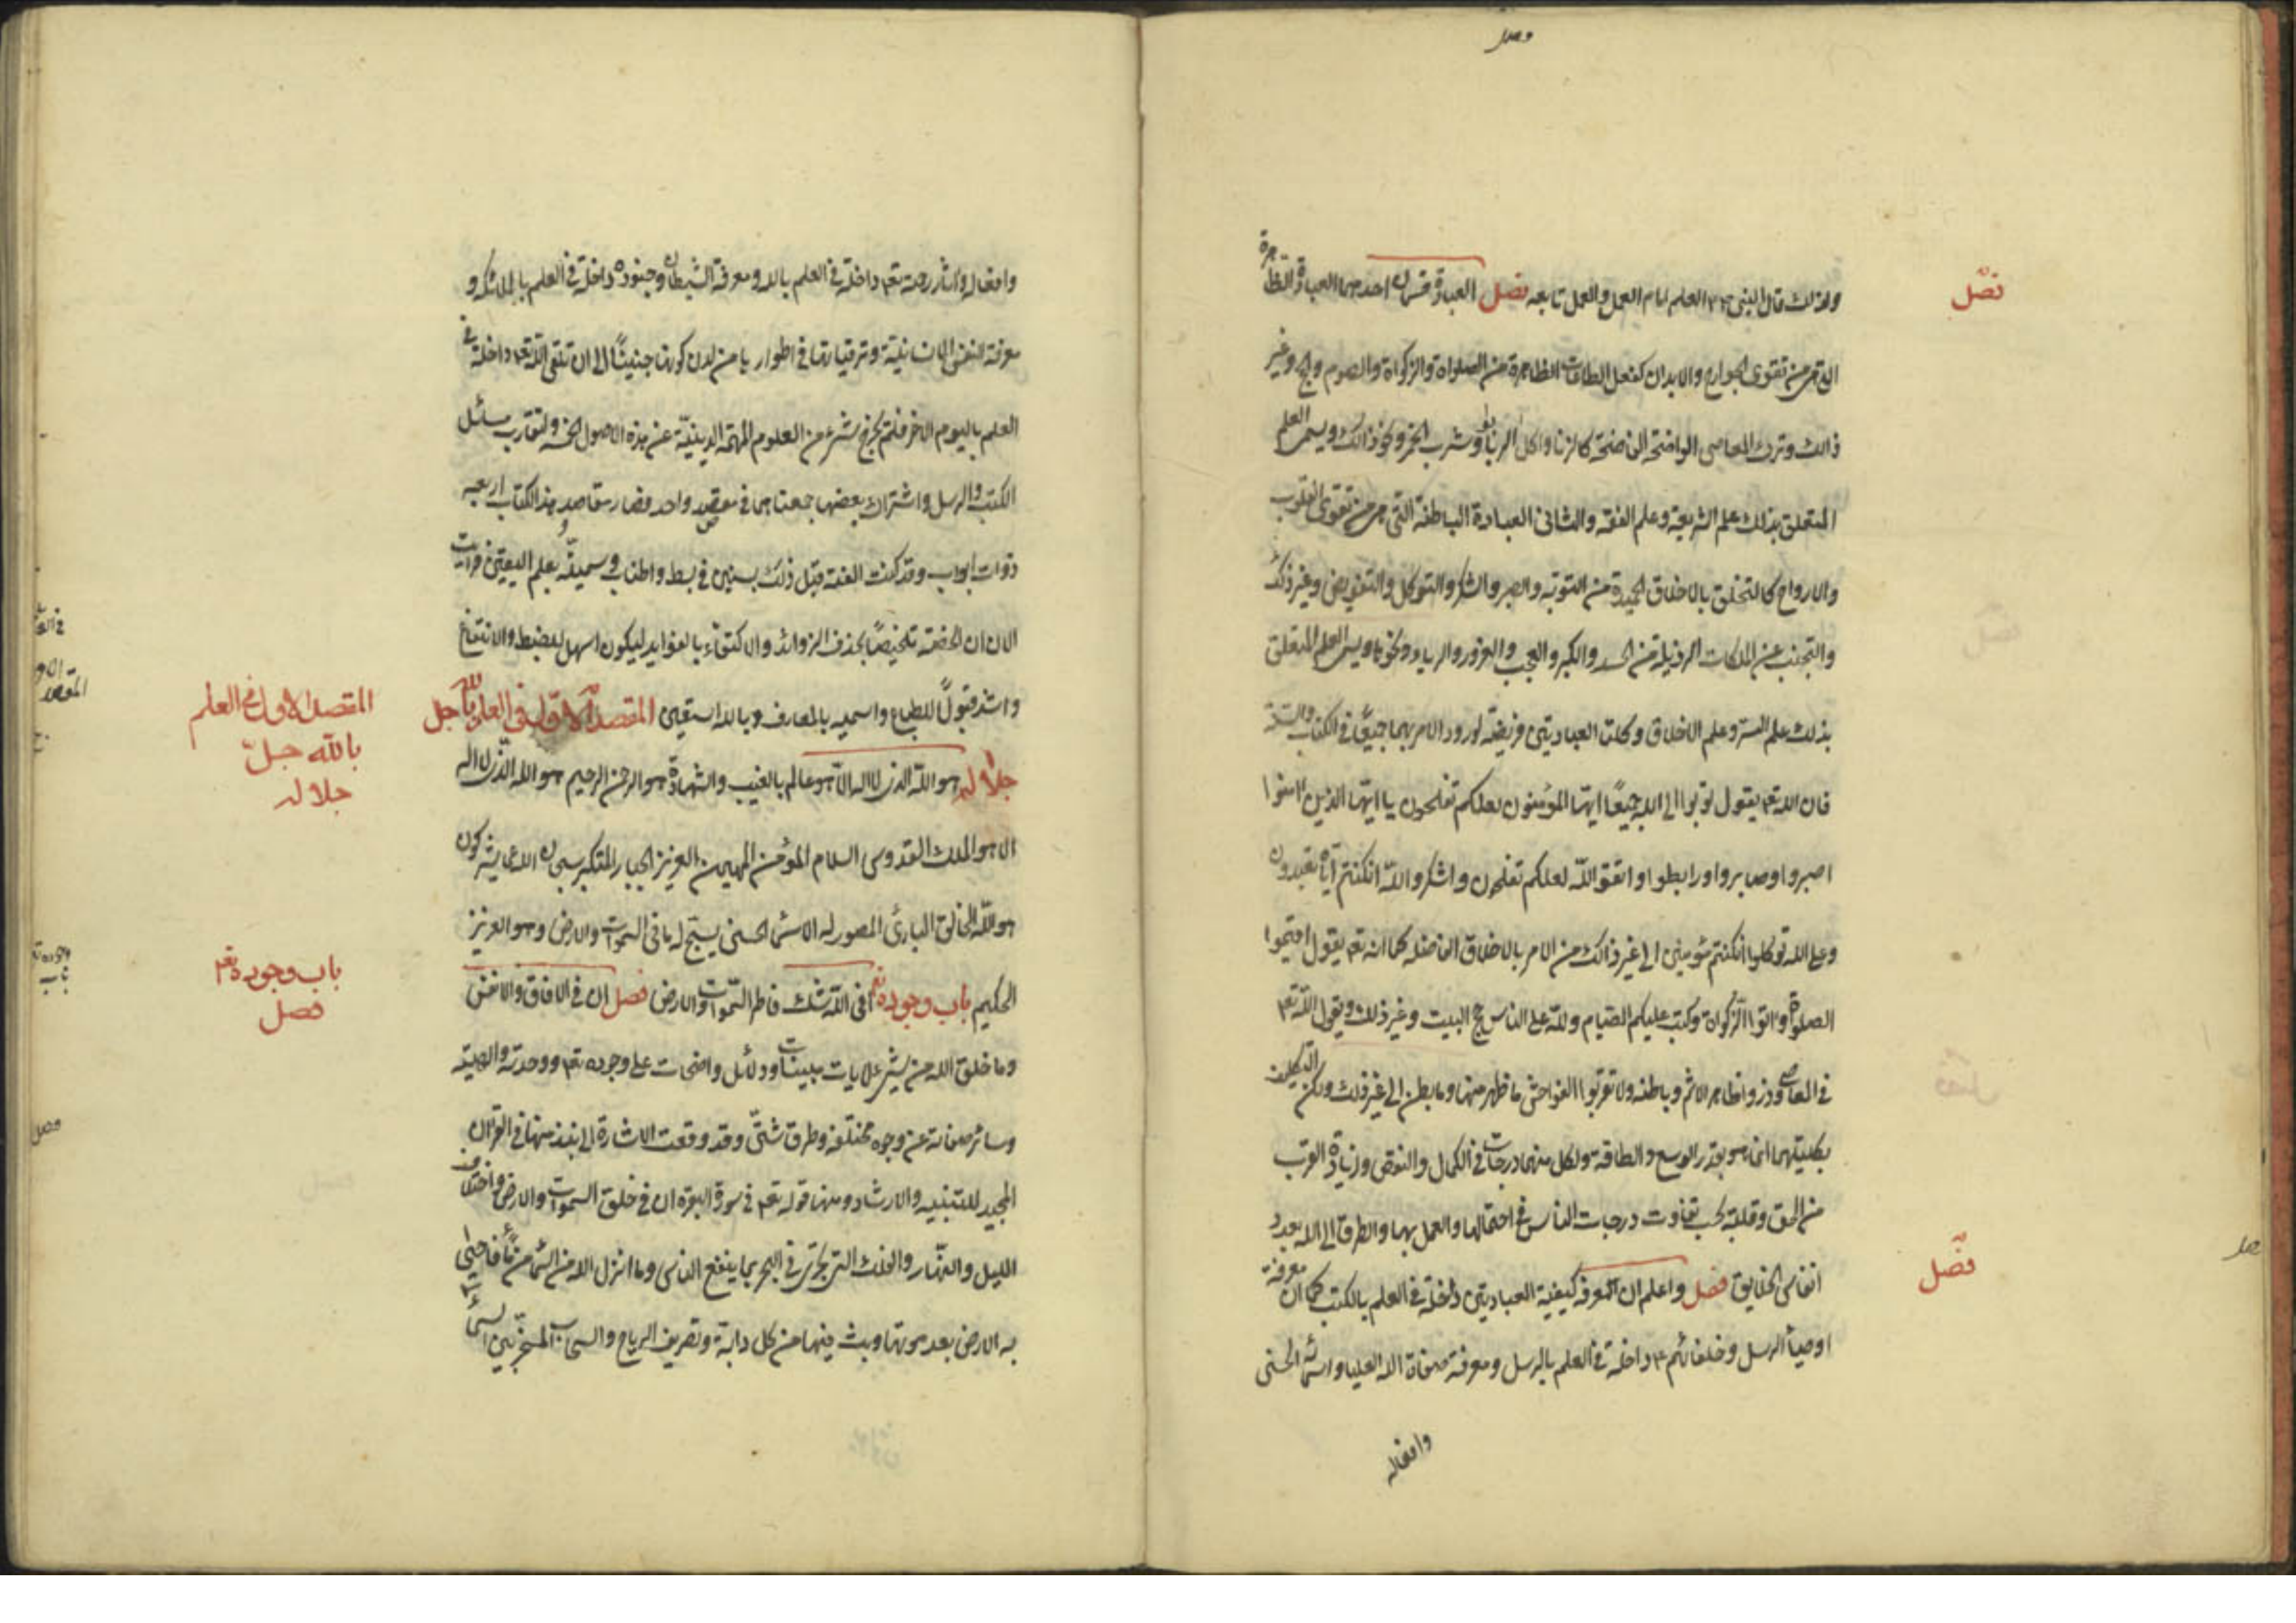 فصل
ولذلك قال النبي ص العلم امام العمل والعمل تابعه فصل العبادة قسمان احدهما العبادة الظاهرة
التي هي من تقوى الجوارح والابدان كفعل الطاعات الظاهرة من الصلواة والزكواة والصوم والحج وغير
ذالك وترك المعاصي الواضحة الفاضحة كالزنا واكل الربا وشرب الخمر ونحو ذالك ويسمى العلم
المتعلق بذلك علم الشريعة وعلم الفقه والثاني العبادة الباطنة التي هي من تقوى القلوب
والارواح كالتخلق بالاخلاق الحميدة من التوبة والصبر والشكر والتوكل والتفويض وغير ذلك
والتجنب عن الملكات الرذيلة من الحسد والكبر والعجب والغرور والرياء ونحوها ويسمى العلم المتعلق
بذلك علم السر وعلم الاخلاق وكلتا العبادتين فريضة لورود الامر بهما جميعًا في الكتاب والسنة
فان الله تعم يقول توبوا الى الله جميعًا ايها المؤمنون لعلكم تفلحون يا ايها الذين امنوا
اصبروا وصابروا ورابطوا واتقوا اللّه لعلكم تفلحون واشكروا اللّه انكنتم اياه تعبدون
وعلى الله توكلوا انكنتم مؤمنين الى غير ذالك من الامر بالاخلاق الفاضله كما انه تعم يقول اقيموا
الصلوة واتوا الزكواة وكتب عليكم الصيام وللّه على الناس حج البيت وغير ذلك ويقول اللّه تعم
في المعاصي وذروا ظاهر الاثم وباطنه ولا تقربوا الفواحش ما ظهر منها وما بطن الى غير ذلك ولكن التكليف
بكليتهما انما هو بقدر الوسع والطاقة ولكل منهما درجات في الكمال والنقص وزيادة القرب
من الحق وقلته بحسب تفاوت درجات الناس في احتمالها والعمل بها والطرق الى الله بعدد
انفاس الخلايق فصل واعلم ان المعرفة كيفية العبادتين داخلة في العلم بالكتب كما ان معرفة
فصل
اوصياء الرسل وخلفائهم ع داخلة في العلم بالرسل ومعرفة صفات الله العليا واسمائه الحسنى
وافعاله
وافعاله واثار رحمته تعم داخلة في العلم بالله ومعرفة الشيطان وجنوده داخلة في العلم بالملائكه و
معرفة النفس الانسانية وترقياتها في اطوارها من لدن كونها جنينًا الى ان تلقى اللّه تعم داخلة في
العلم باليوم الاخر فلم يخرج شيء من العلوم المهمة الدينيّة عن هذه الاصول الخمسة ولتقارب مسائل
الكتب والرسل واشتراك بعضها جمعناهما في مقصد واحد فصار مقاصد هذا الكتاب اربعه
ذوات ابواب وقد كنت الفته قبل ذلك بسنين في بسط واطناب وسميته بعلم اليقين فرايت
الان ان الخصه تلخيصًا بحذف الزوائد والاكتفاء بالفوايد ليكون اسهل للضبط والانتفاع
واشد قبولًا للطباع واسميه بالمعارف وبالله استعين المقصد الاوّل في العلم باللّه جل
المقصد الاول في العلم
باللّه جلّ
جلاله
جلاله هو اللّه الذي لا اله الا هو عالم بالغيب والشهادة هو الرحمن الرحيم هو اللّه الذي لا اله
الا هو الملك القدوس السلام المؤمن المهيمن العزيز الجبار المتكبر سبحان الله عما يشركون
هو اللّه الخالق البارئ المصور له الاسماء الحسنى يسبح له ما في السموات والارض وهو العزيز
الحكيم باب وجوده تعم افي اللّه شك فاطر السّموات والارض فصل ان في الافاق والانفس
باب وجوده تعم
فصل
وما خلق الله من شيء لايات مبينات ودلائل واضحات على وجوده تعم ووحدته والهيته
وسائر صفاته عن وجوه مختلفة وطرق شتّى وقد وقعت الاشارة الى نبذ منها في القران
المجيد للتنبيه والارشاد ومنها قوله تعم في سورة البقرة ان في خلق السموات والارض واختلاف
الليل والنهار والفلك التي تجري في البحر بما ينفع الناس وما انزل الله من السماء من ماء فاحيى
به الارض بعد موتها وبث فيها من كل دابة وتصريف الرياح والسحاب المسخر بين السماء